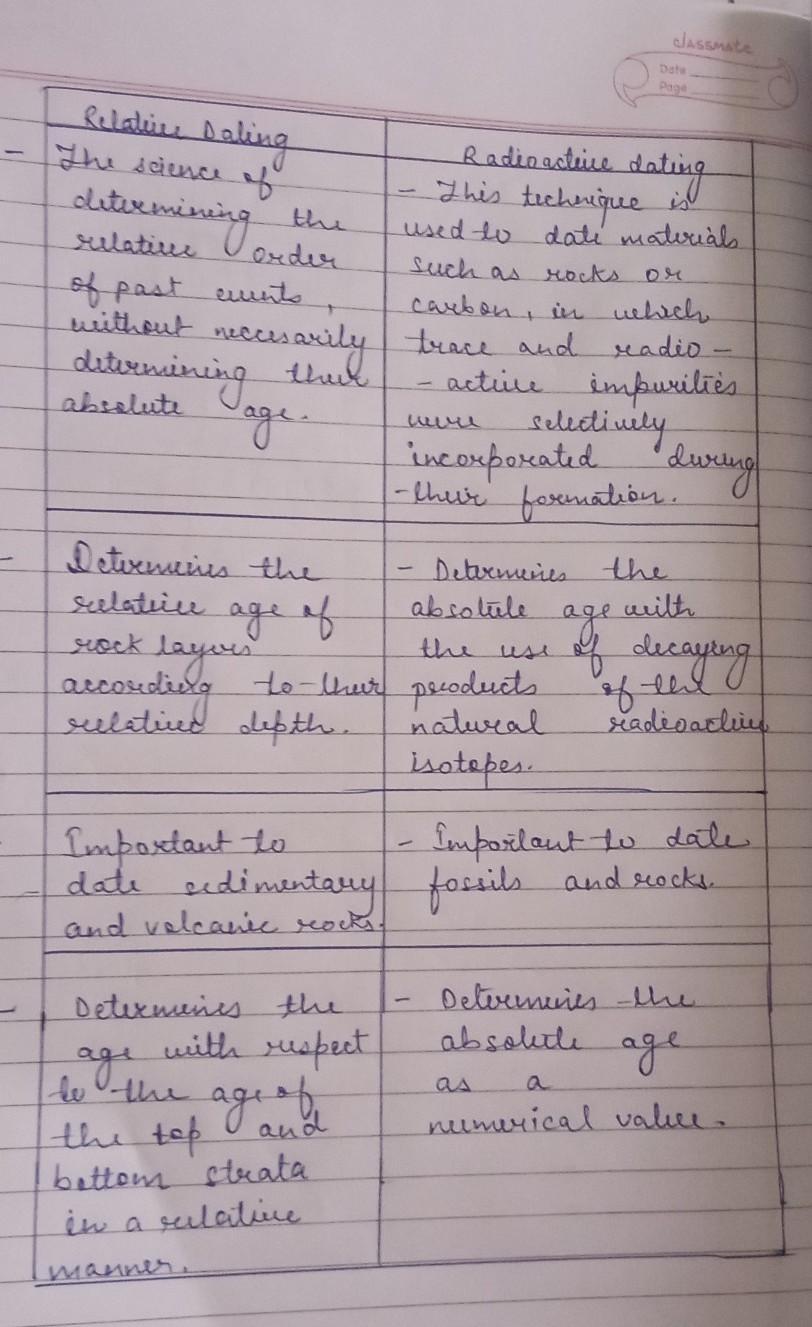 classmate
Date
Page
Relative Dating
- The science of
determining the
relative order
of past events,
without neccesarily
determining their
absolute age.
Radioactive dating
- This technique is
used to date materials
such as rocks or
carbon, in which
trace and radio -
- active impurities
were selectively
incorporated during
- their formation.
- Determines the
relative age of
rock layers
according to their
relative depth.
- Determines the
absolute age with
the use of decaying
products of the
natural radioactive
isotopes.
- Important to
date sedimentary
and volcanic rocks.
- Important to date
fossils and rocks.
- Determines the
age with respect
to the age of
the top and
bottom strata
in a relative
manner.
- Determines the
absolute age
as a
numerical value.